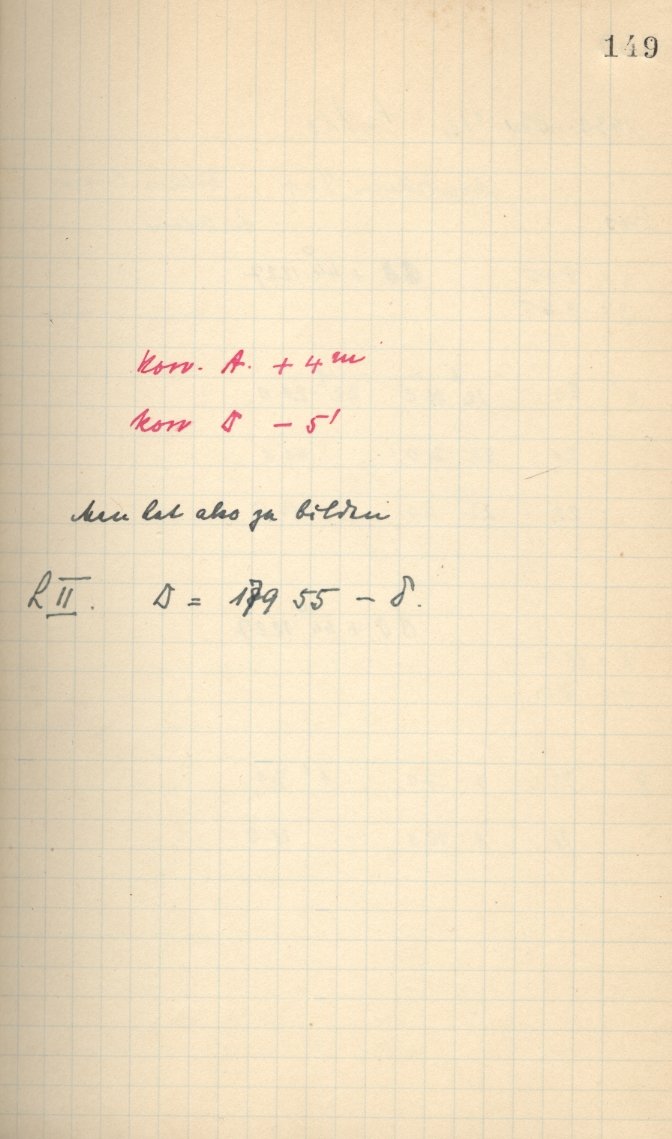 149
Korr. A. + 4ᵐ
Korr D - 5'
Man hat also zu bilden
L II. D = 179 55 - δ.